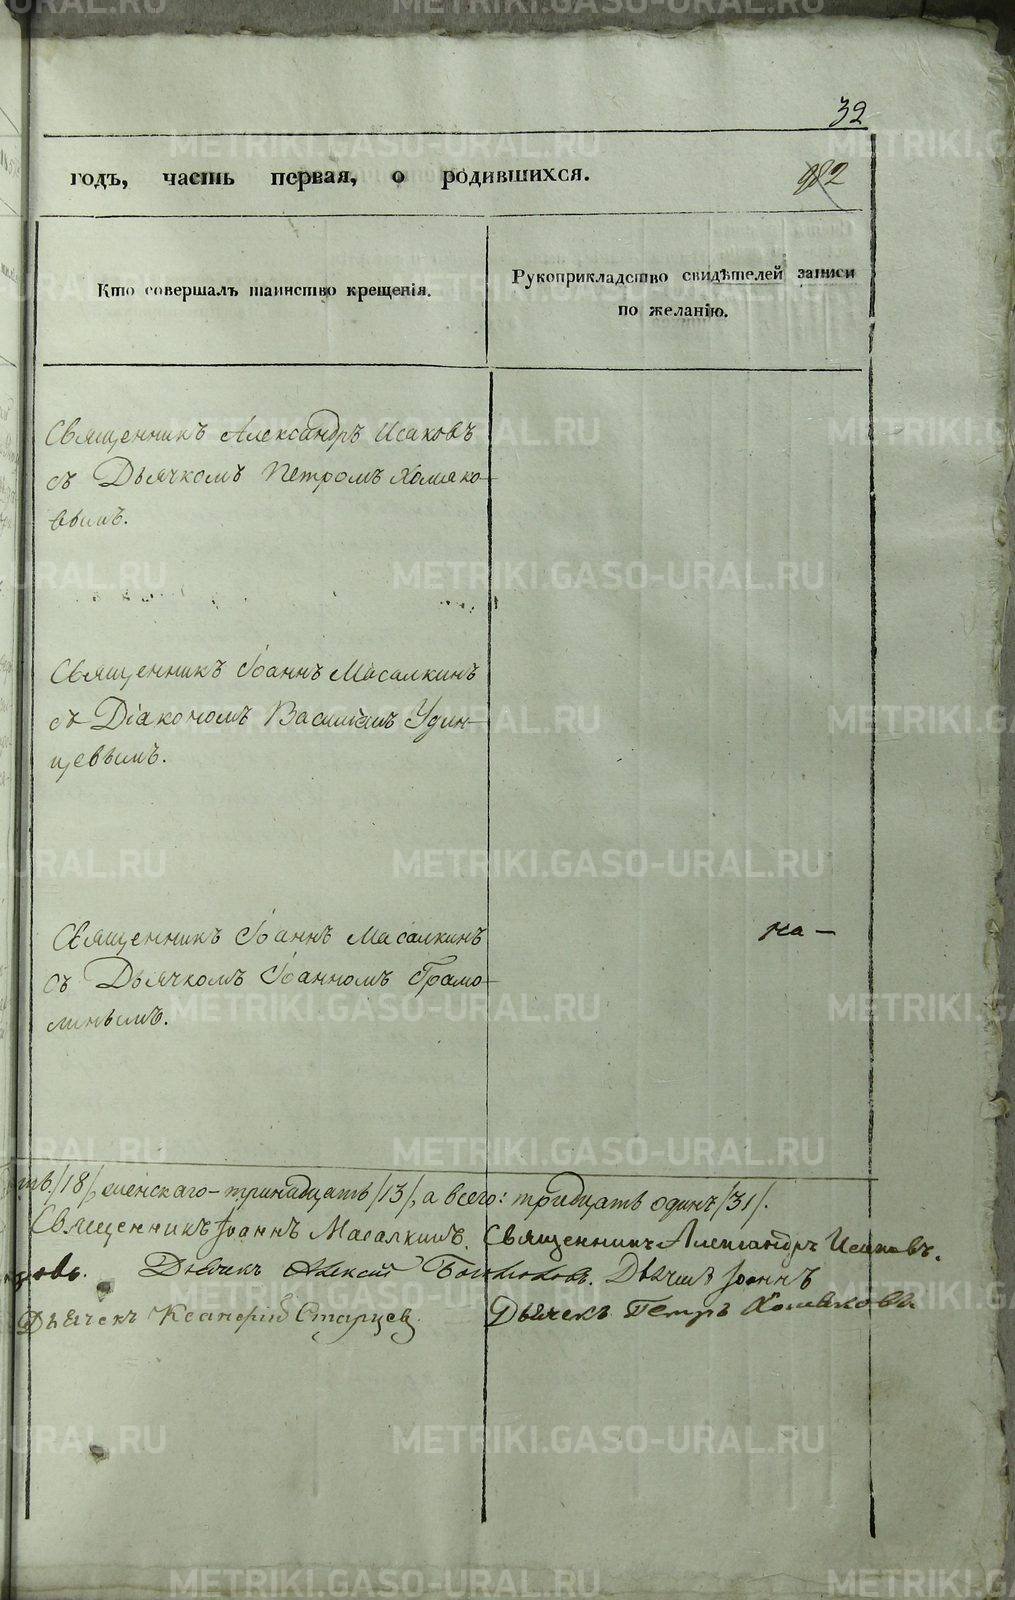 32
годъ, часть первая, о родившихся.
982
Кто совершалъ таинство крещенія.
Рукоприкладство свидѣтелей записи
по желанію.
Священникъ Александръ Исаковъ
съ Дьячкомъ Петромъ Хомяко-
вымъ.
Священникъ Іоаннъ Масалкинъ
съ Діакономъ Василіемъ Удин-
цевымъ.
Священникъ Іоаннъ Масалкинъ
съ Дьячкомъ Іоанномъ Грамо-
линымъ.
на-
/18/, женскаго - тринадцать /13/, а всего: тридцать одинъ /31/.
Священникъ Іоаннъ Масалкинъ. Священникъ Александръ Исаковъ.
Дьячекъ Алексій Дьячекъ Іоаннъ
Дьячекъ Ксенофонтъ Старцев Дьячекъ Петръ Хомяковъ
METRIKI.GASO-URAL.RU